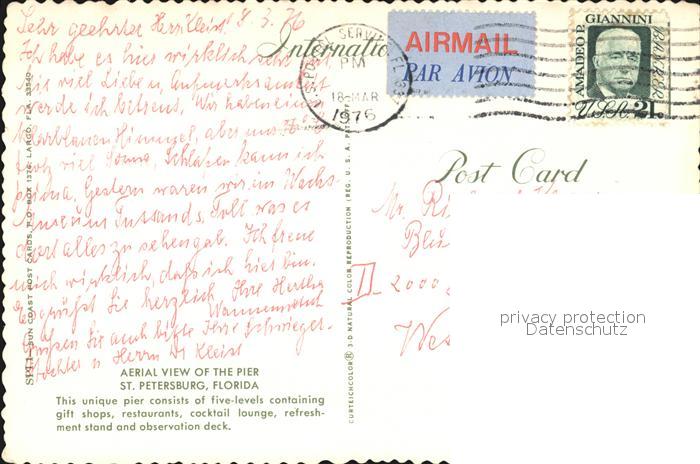 Sehr geehrter Herr Kleist 8. 3. 76
Ich habe es hier wirklich sehr gut
viel Liebe u. Aufmerksamkeit
werde ich betreut. Wir haben einen
Himmel, aber
trotz viel Sonne. Schlafen kann ich
prima. Gestern waren wir im Wachs-
museum Tussauds. Toll was es
dort alles zu sehen gab. Ich freue
mich wirklich, dass ich hier bin.
Es grüsst Sie herzlich Ihre Hertha
Grüßen Sie auch bitte Ihre Schwieger-
tochter u Herrn Dr Kleist
International
U.S. POSTAL SERVICE FL
PM
18 MAR
1976
AIRMAIL
PAR AVION
AMADEO P. GIANNINI
BANKER
U.S.A. 21
Post Card
Mr.
2000
SUN COAST POST CARDS, P.O. BOX 1376, LARGO, FLA. 33540
CURTEICHCOLOR® 3-D NATURAL COLOR REPRODUCTION (REG. U. S. A.
privacy protection
Datenschutz
AERIAL VIEW OF THE PIER
ST. PETERSBURG, FLORIDA
This unique pier consists of five-levels containing
gift shops, restaurants, cocktail lounge, refresh-
ment stand and observation deck.